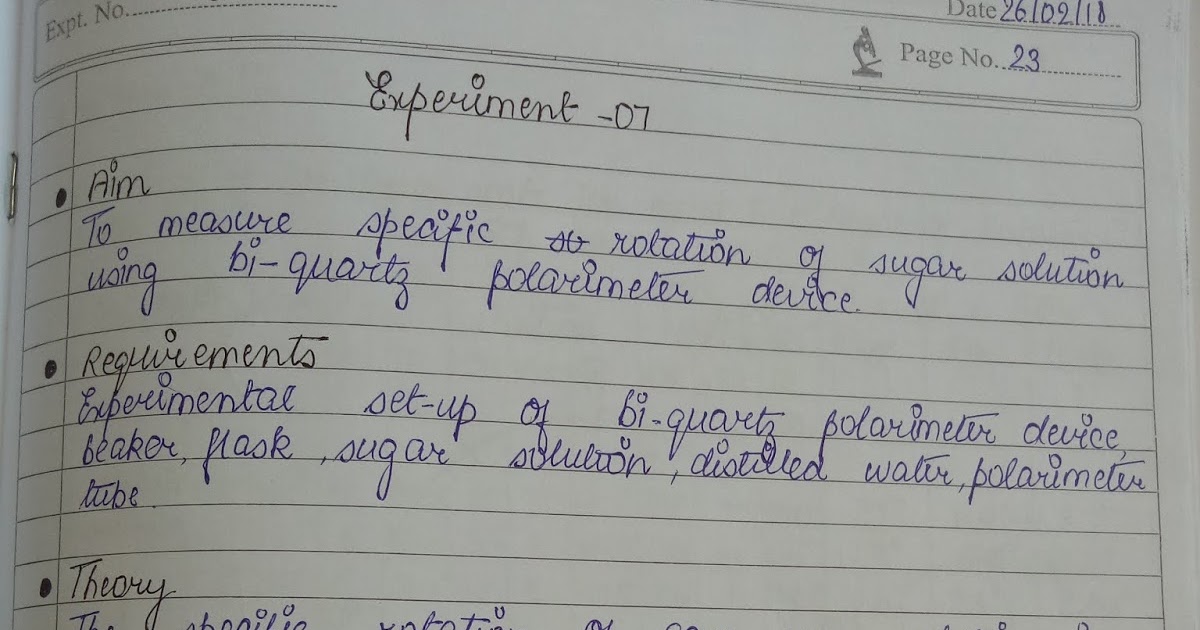 Expt. No.
Date 26/02/18
Page No. 23
Experiment -07
Aim
To measure specific rotation of sugar solution
using bi-quartz polarimeter device.
Requirements
Experimental set-up of bi-quartz polarimeter device,
beaker, flask, sugar solution, distilled water, polarimeter
tube.
Theory
The specific rotation of